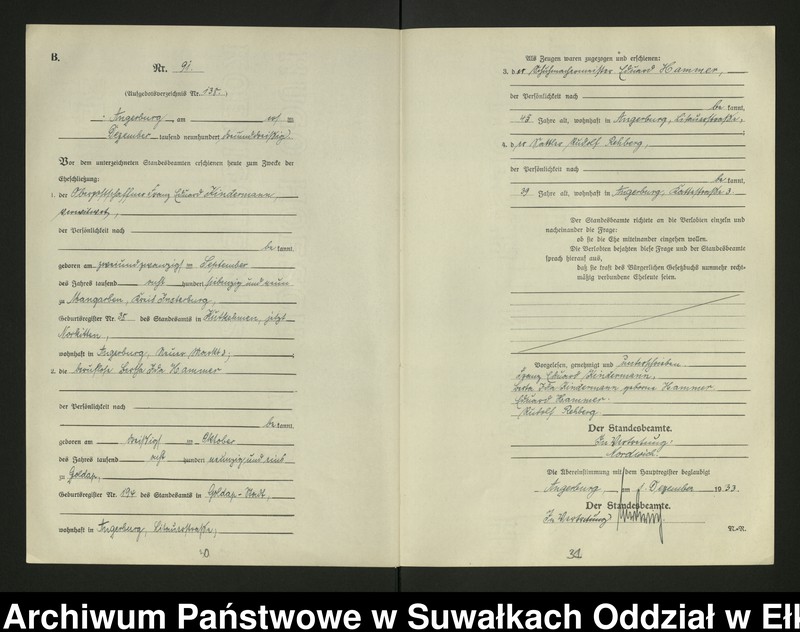 B.
Nr. 91
(Aufgebotsverzeichnis Nr. 135.)
Angerburg, am
Dezember tausend neunhundert dreiunddreißig.
Vor dem unterzeichneten Standesbeamten erschienen heute zum Zwecke der
Eheschließung:
1. der Oberpostschaffner Franz Eduard Kindermann,
verwitwet,
der Persönlichkeit nach
be kannt,
geboren am zweiundzwanzigsten September
des Jahres tausend acht hundert siebenzig und neun
zu Mangarben, Kreis Insterburg,
Geburtsregister Nr. des Standesamts in jetzt
Norkitten,
wohnhaft in Angerburg, Neuer Markt
2. die berufslose Berta Ida Hammer
der Persönlichkeit nach
be kannt,
geboren am dreißigsten Oktober
des Jahres tausend acht hundert neunzig und eins
zu Goldap,
Geburtsregister Nr. 194 des Standesamts in Goldap-Stadt,
wohnhaft in Angerburg, Litauerstraße,
Als Zeugen waren zugezogen und erschienen:
3. der Schuhmachermeister Eduard Hammer,
der Persönlichkeit nach
be kannt,
45 Jahre alt, wohnhaft in Angerburg, Litauerstraße,
4. der Sattler Rudolf Rehberg,
der Persönlichkeit nach
be kannt,
39 Jahre alt, wohnhaft in Angerburg, 3
Der Standesbeamte richtete an die Verlobten einzeln und
nacheinander die Frage:
ob sie die Ehe miteinander eingehen wollen.
Die Verlobten bejahten diese Frage und der Standesbeamte
sprach hierauf aus,
daß sie kraft des Bürgerlichen Gesetzbuchs nunmehr recht-
mäßig verbundene Eheleute seien.
Vorgelesen, genehmigt und unterschrieben
Franz Eduard Kindermann,
Berta Ida Kindermann geborene Hammer
Eduard Hammer.
Rudolf Rehberg.
Der Standesbeamte.
In Vertretung.
Nordwich
Die Übereinstimmung mit dem Hauptregister beglaubigt
Angerburg, am 1. Dezember 1933.
Der Standesbeamte.
In Vertretung
Archiwum Państwowe w Suwałkach Oddział w Ełk